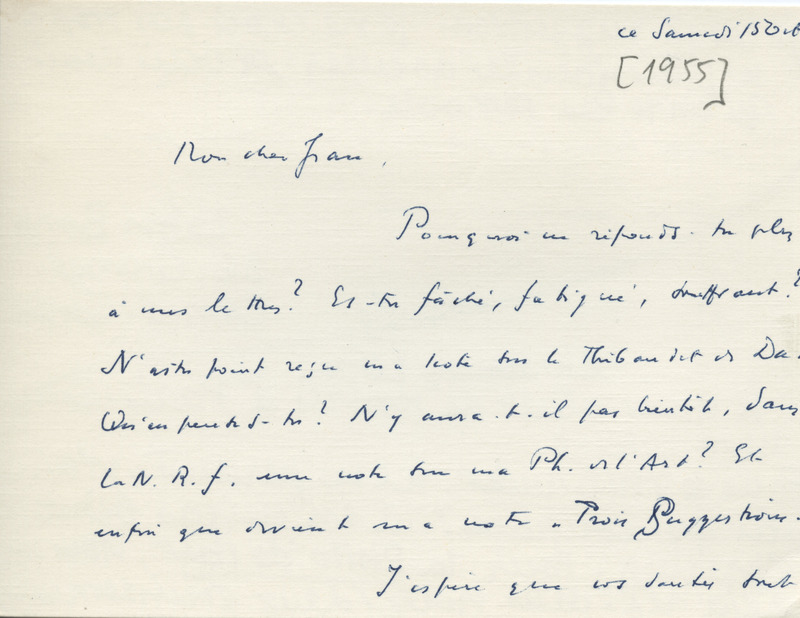 ce Samedi 15 Oct
[1955]
Mon cher Jean,
Pourquoi ne réponds-tu plus
à mes lettres? Es-tu fâché, fatigué, souffrant?
N'as-tu point reçu ma note sur le Thibaudet de Da
Qu'en penses-tu? N'y aura-t-il pas bientôt, dans
la N.R.f. une note sur ma Ph. de l'Art? Et
enfin que devient ma note "Trois Suggestions
J'espère que vos santés sont